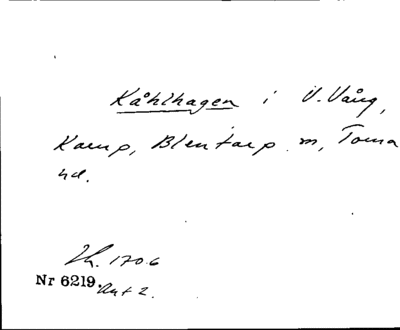 Kåhlhagen i V. Vång,
Kamp, Blentarp m, Torna
hd.
Jb. 1706
Nr 6219. Akt 2.